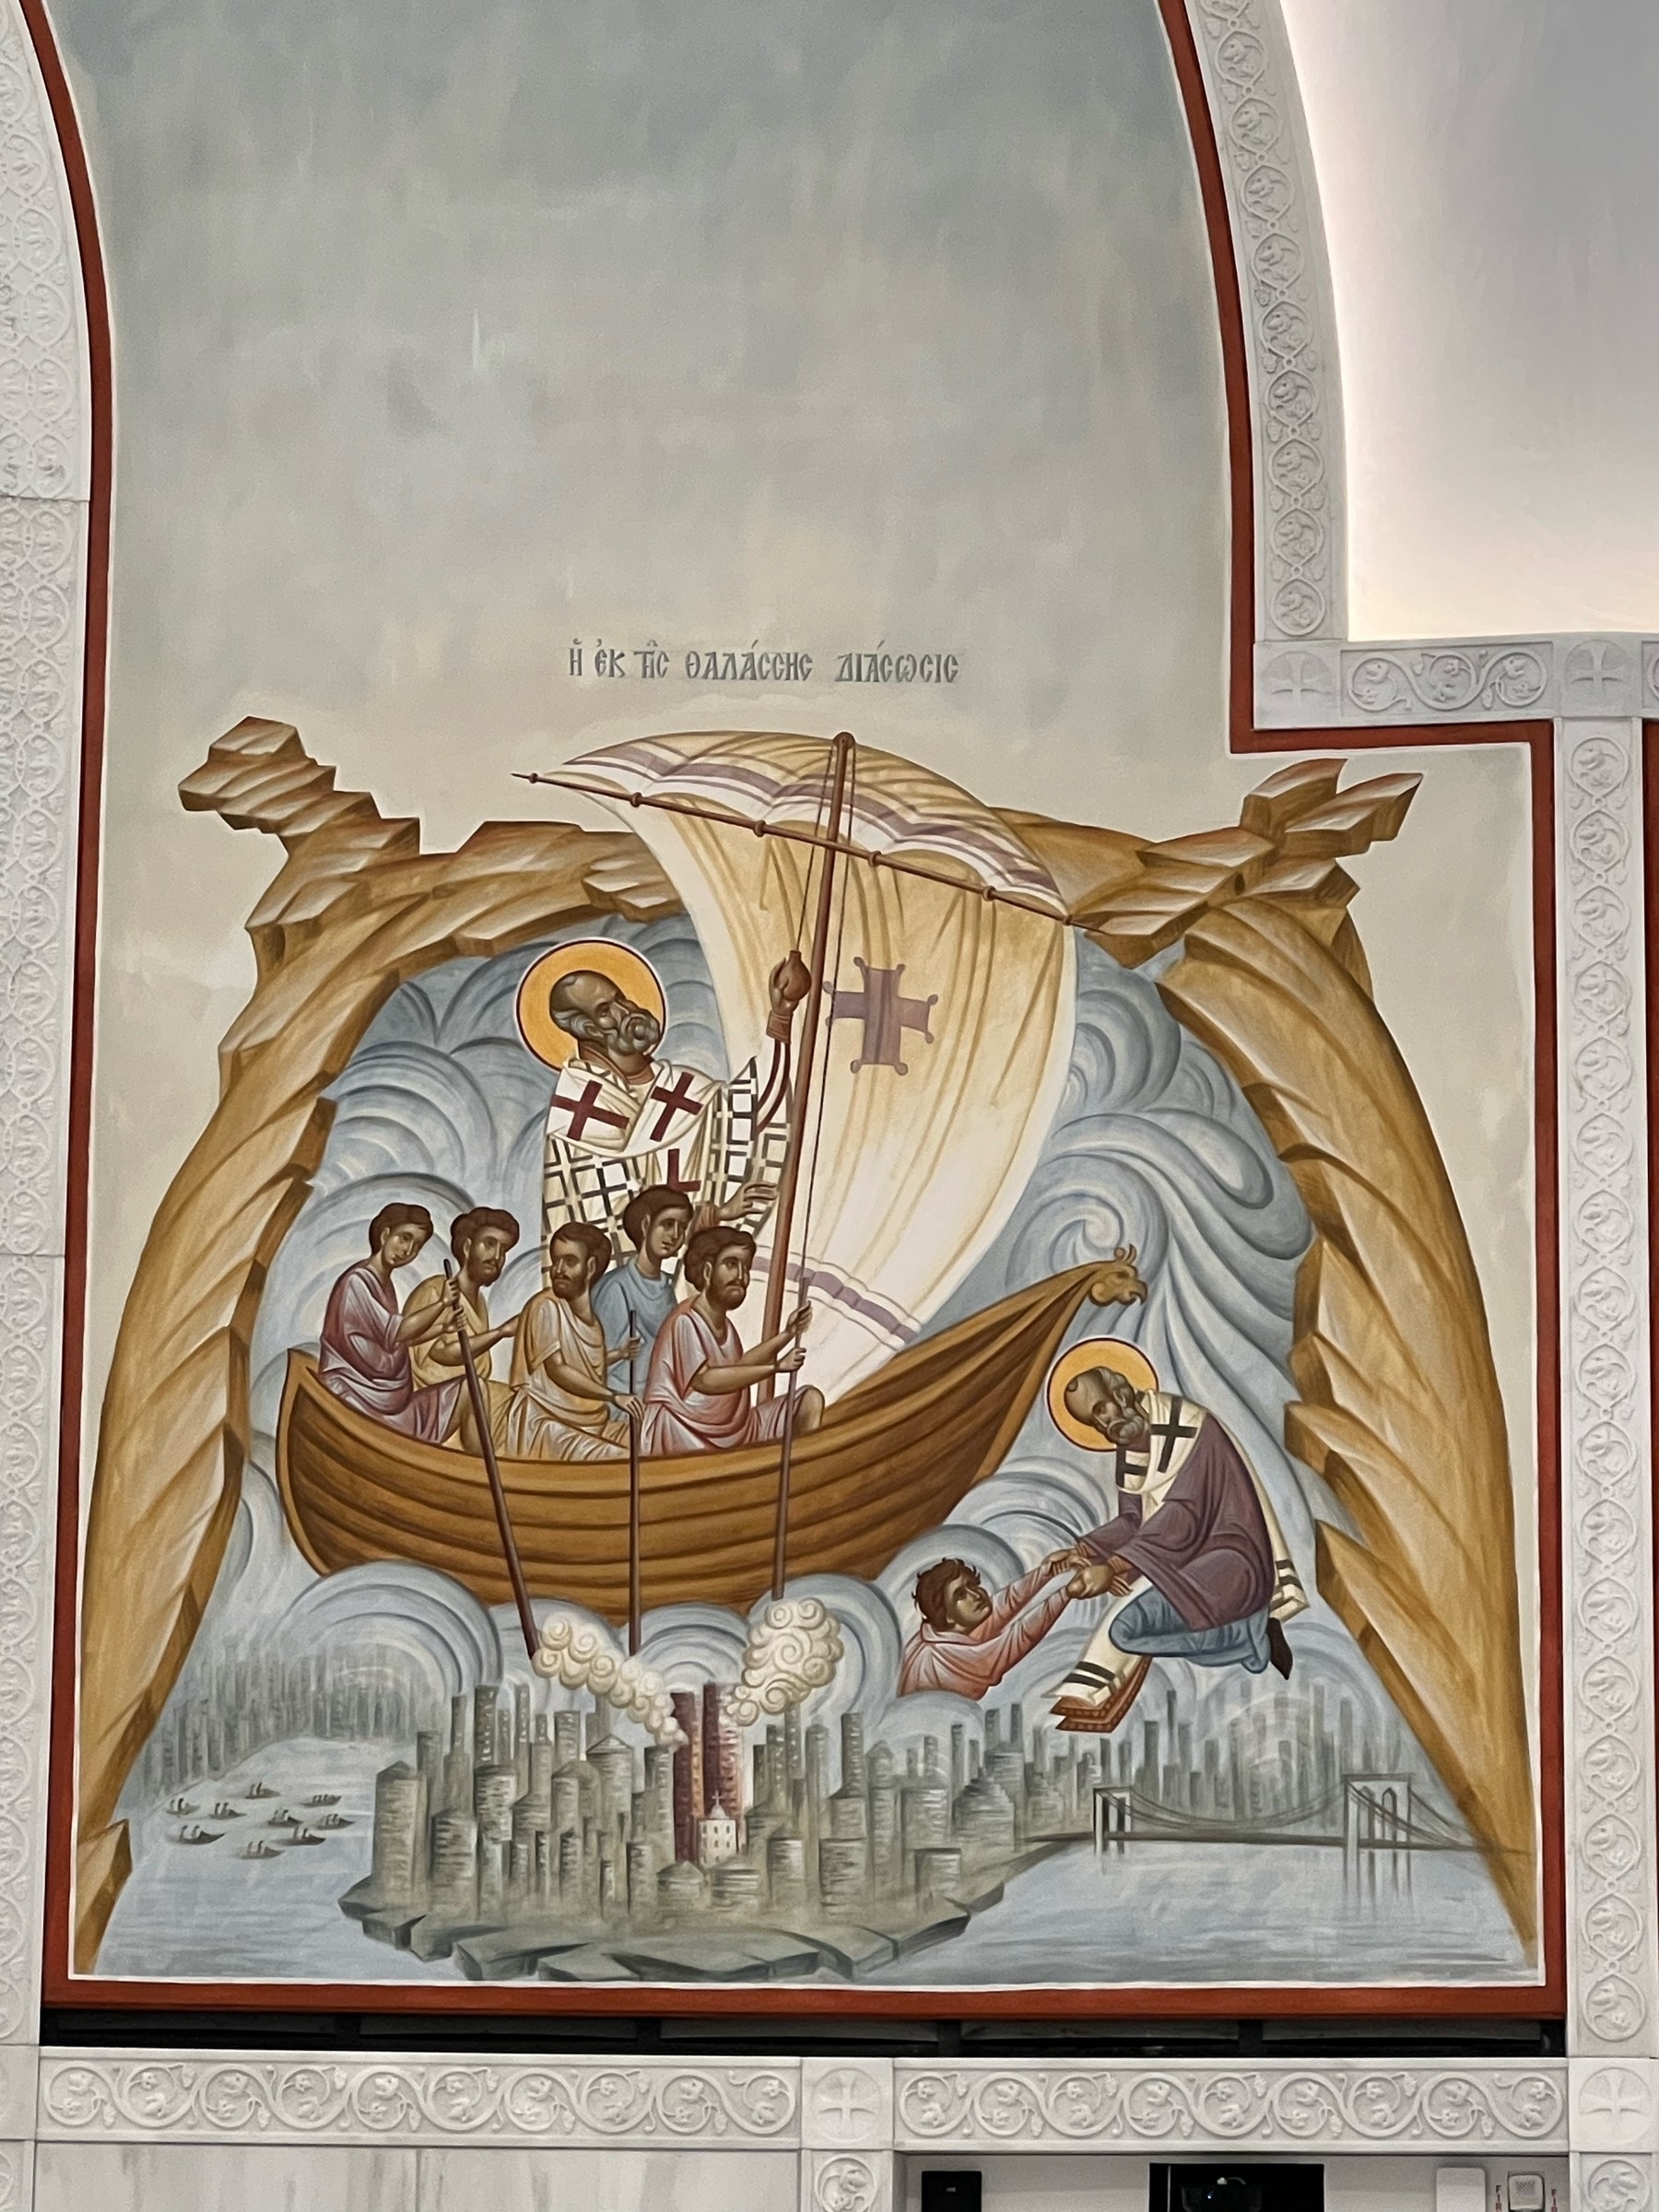 Ἡ ἐκ τῆς θαλάσσης διάσωσις